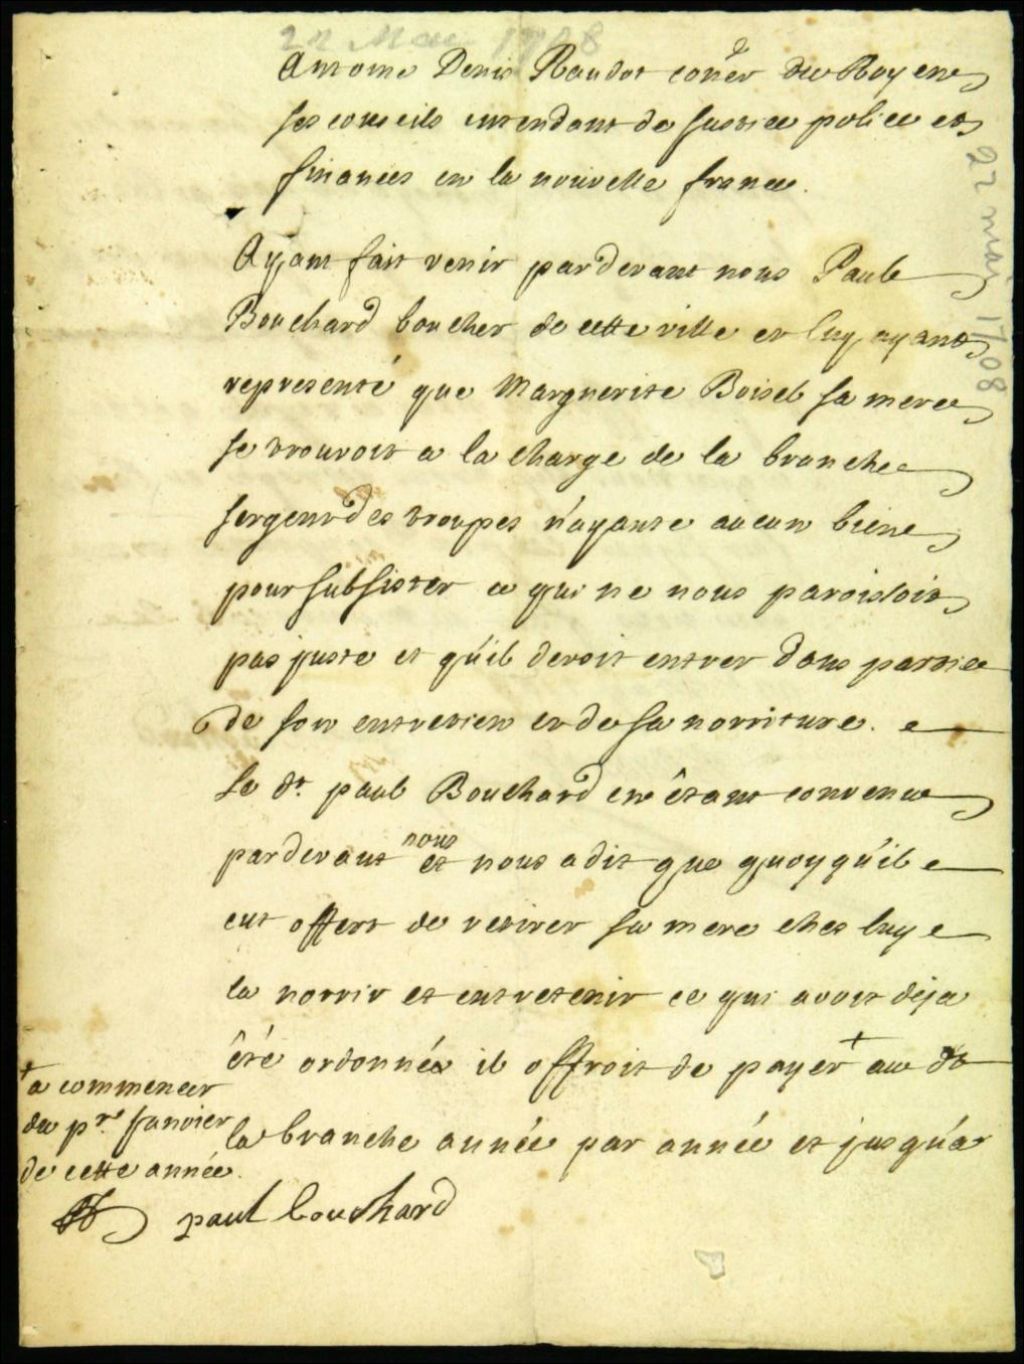 22 Mai 1708
Antoine Denis Raudot coner du Roy en
ses conseils intendant de justice police et
finances en la nouvelle france.
Ayant fait venir pardevant nous Paul
Bouchard boucher de cette ville et luy ayant
representé que Marguerite Boisel sa mere
se trouvoit a la charge de la branche
sergent des troupes n'ayante aucun bien
pour subsister ce qui ne nous paroissoit
pas juste et qu'il devoit entrer dans partie
de son entretien et de sa norriture.
Le dt. paul Bouchard en êtant convenu
pardevant nous et nous a dit que quoyqu'il
eut offert de retirer sa mere ches luy
la norrir et entretenir ce qui avoit deja
êté ordonnée il offroit de payer + au dt
la branche année par année et jusqu'a
+ a commencer
du pre. Janvier
de cette année.
paul bouchard
22 mai 1708